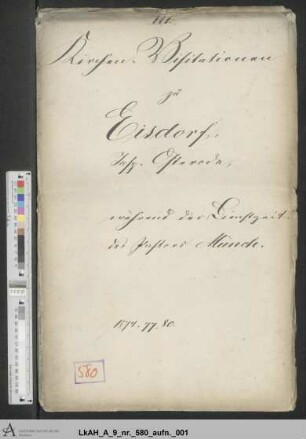 III.
Kirchen-Visitationen
zu
Eisdorf,
Insp. Osterode,
während der Dienstzeit
des Pastors Münch.
1874. 77. 80.
580
LkAH_A_9_nr._580_aufn._001